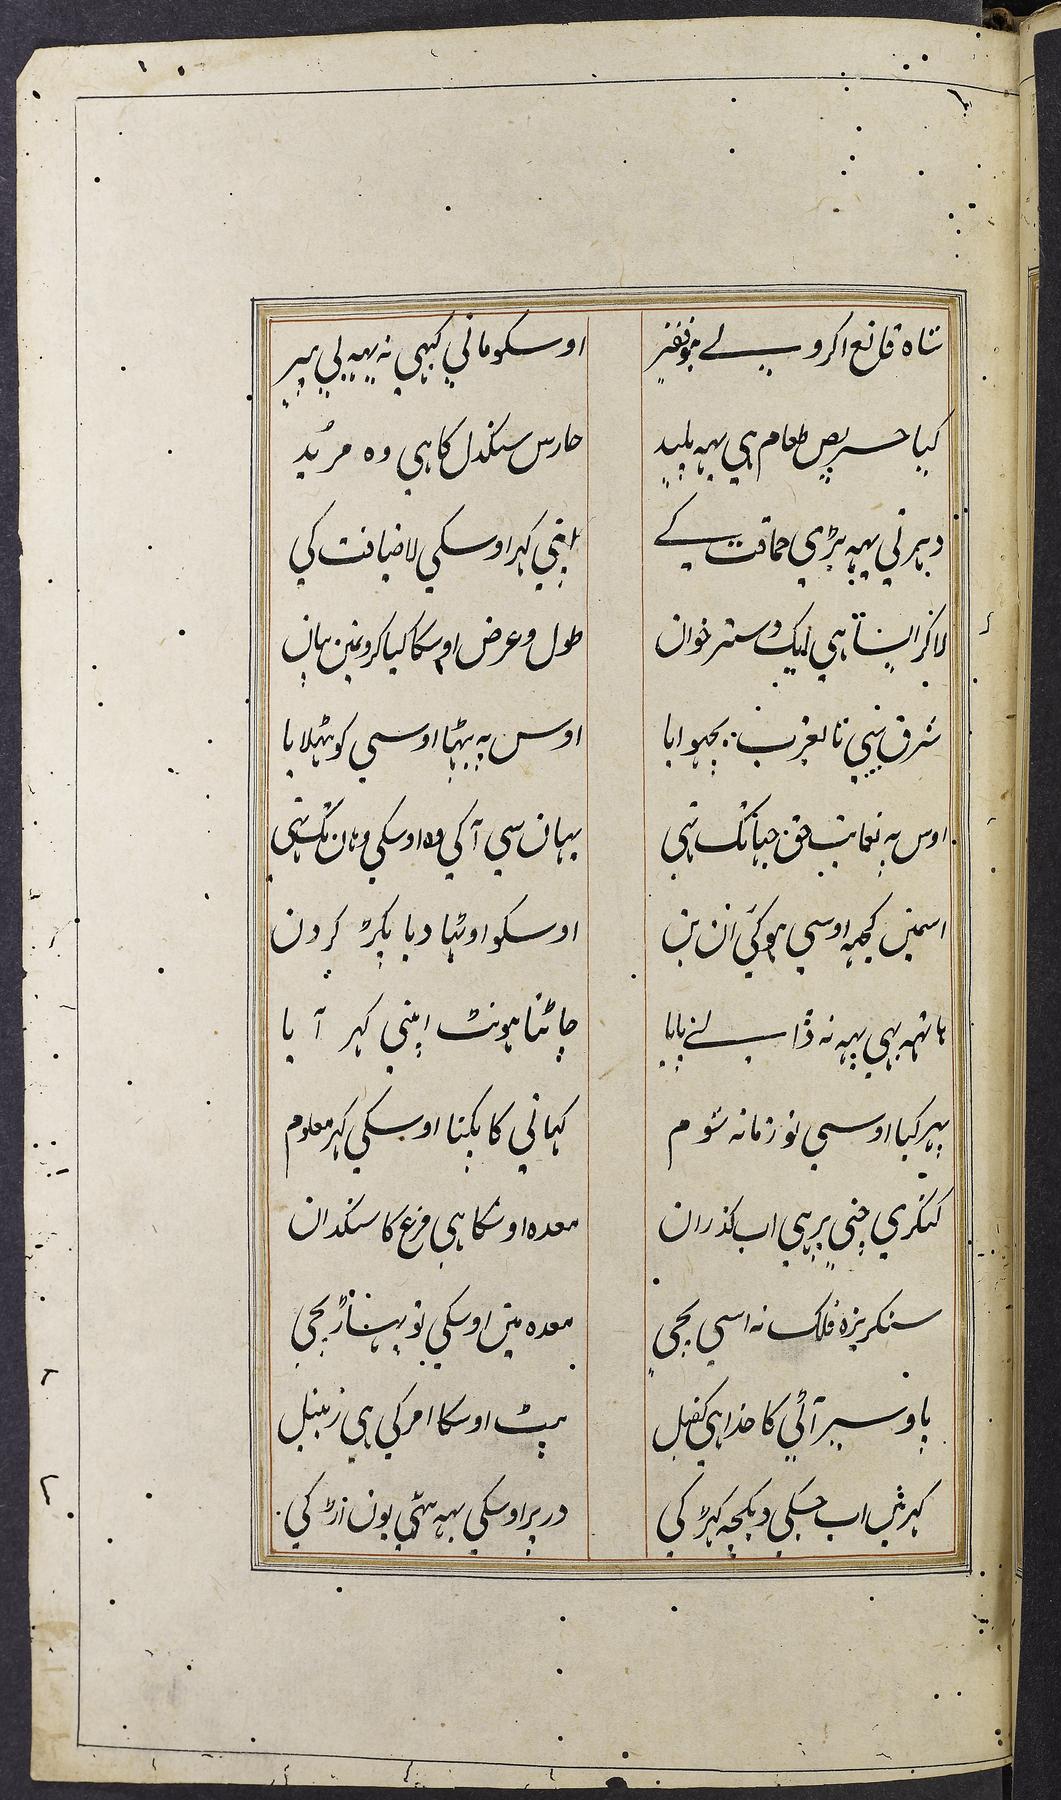 شاه قانع اکروہ لے ہو فقیر اوسکو مانی کبہی نہ یہہ لی پیر
کیا حریص طعام ہی یہہ پلید حارس سنکدل کا ہی وہ مرید
دہرتی یہہ بڑی حماقت کے اپنی کہر اوسکی لا ضیافت کی
لاکر ایسا ہی ایک دسترخوان طول و عرض اوسکا کیا کرون مین بیان
شرق سی تا بغرب بچہوایا اوس پہ بیٹہا اوسی کو بٹہلایا
اوس پہ نعمایت حق جہانتک تہی یہان سی آکی وہ اوسکی وہان تک تہی
اسمین کچہہ اوسی ہوکئی ان بن اوسکو اوٹہا دیا پکڑ کردن
ہاتہہ بہی یہہ نہ ڈالنے پایا چاٹتا ہونٹ اپنی کہر آیا
پہر کیا اوسی تو زمانہ شوم کہانی کا پکنا اوسکی کہر معلوم
کنکری چنی پر ہی اب کذران معدہ اوسکا ہی مرغ کا سنکدان
سنکریزہ فلک نہ اسی بچی معدہ مین اوسکی تو پہاڑ بچی
پاو سیر آئی کا خدا ہی کفیل پیٹ اوسکا امرکی ہی زنبیل
کہر مین اب جسکی دیکچہ کہڑکی در پر اوسکی یہہ بیٹہی یون اڑکی